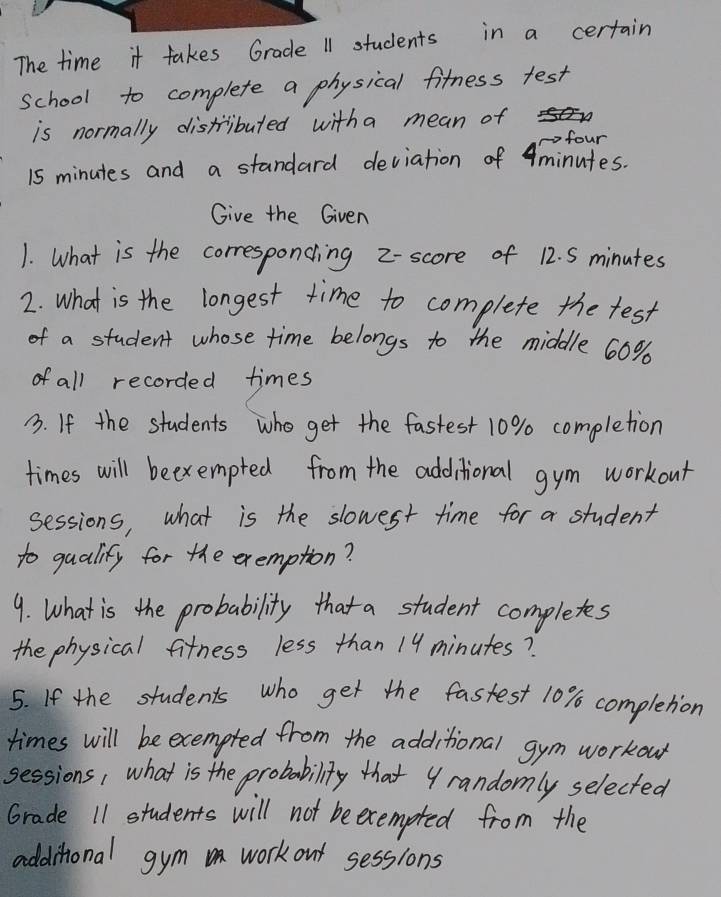 The time it takes Grade 11 students in a certain
school to complete a physical fitness test
is normally distributed with a mean of
→ four
15 minutes and a standard deviation of 4minutes.
Give the Given
1. What is the corresponding z-score of 12.5 minutes
2. What is the longest time to complete the test
of a student whose time belongs to the middle 60%
of all recorded times
3. If the students who get the fastest 10% completion
times will beexempted from the additional gym workout
sessions, what is the slowest time for a student
to qualify for the exemption?
4. What is the probability that a student completes
the physical fitness less than 14 minutes?
5. If the students who get the fastest 10% completion
times will be exempted from the additional gym workout
sessions, what is the probability that 4 randomly selected
Grade 11 students will not be exempted from the
additional gym workout sessions